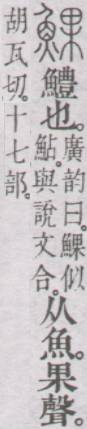 ⿰魚果鱧也。廣韵曰。⿰魚果似鮎。與說文合。从魚。果聲。
胡瓦切。十七部。